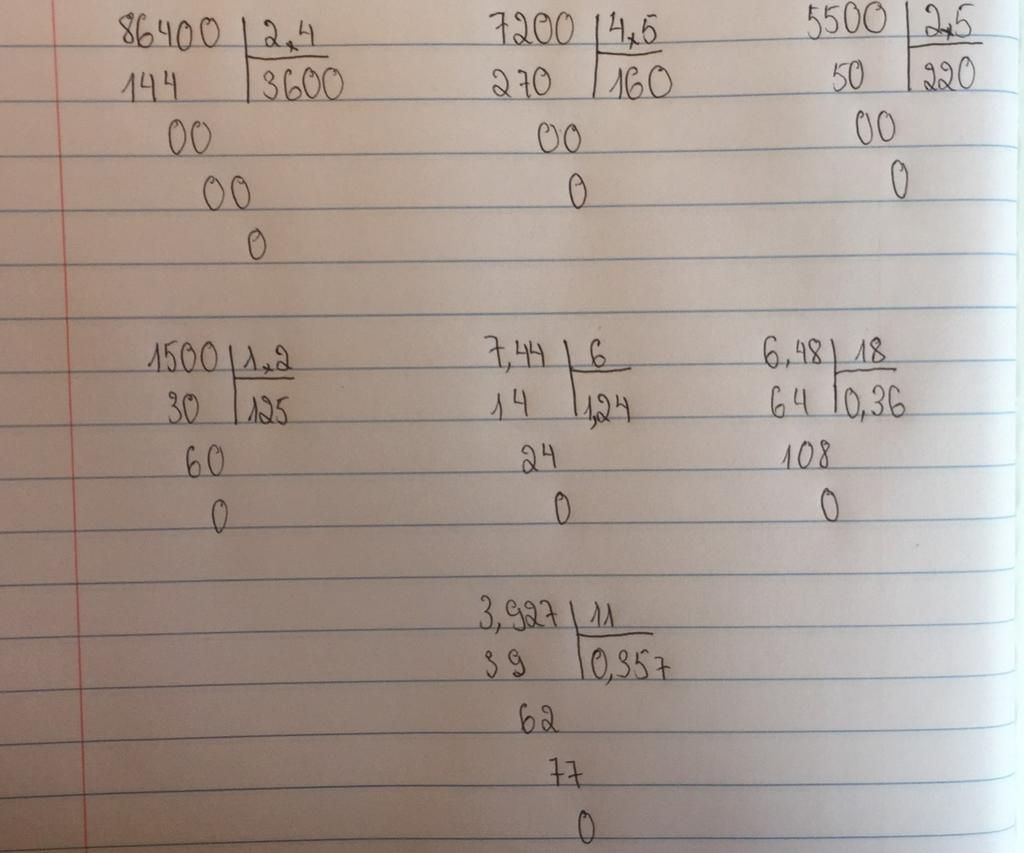 86400 2,4 7200 4,5 5500 2,5
144 3600 270 160 50 220
00 00 00
00 0 0
0
1500 1,2 7,44 6 6,48 18
30 125 14 1,24 64 0,36
60 24 108
0 0 0
3,927 11
39 0,357
62
77
0